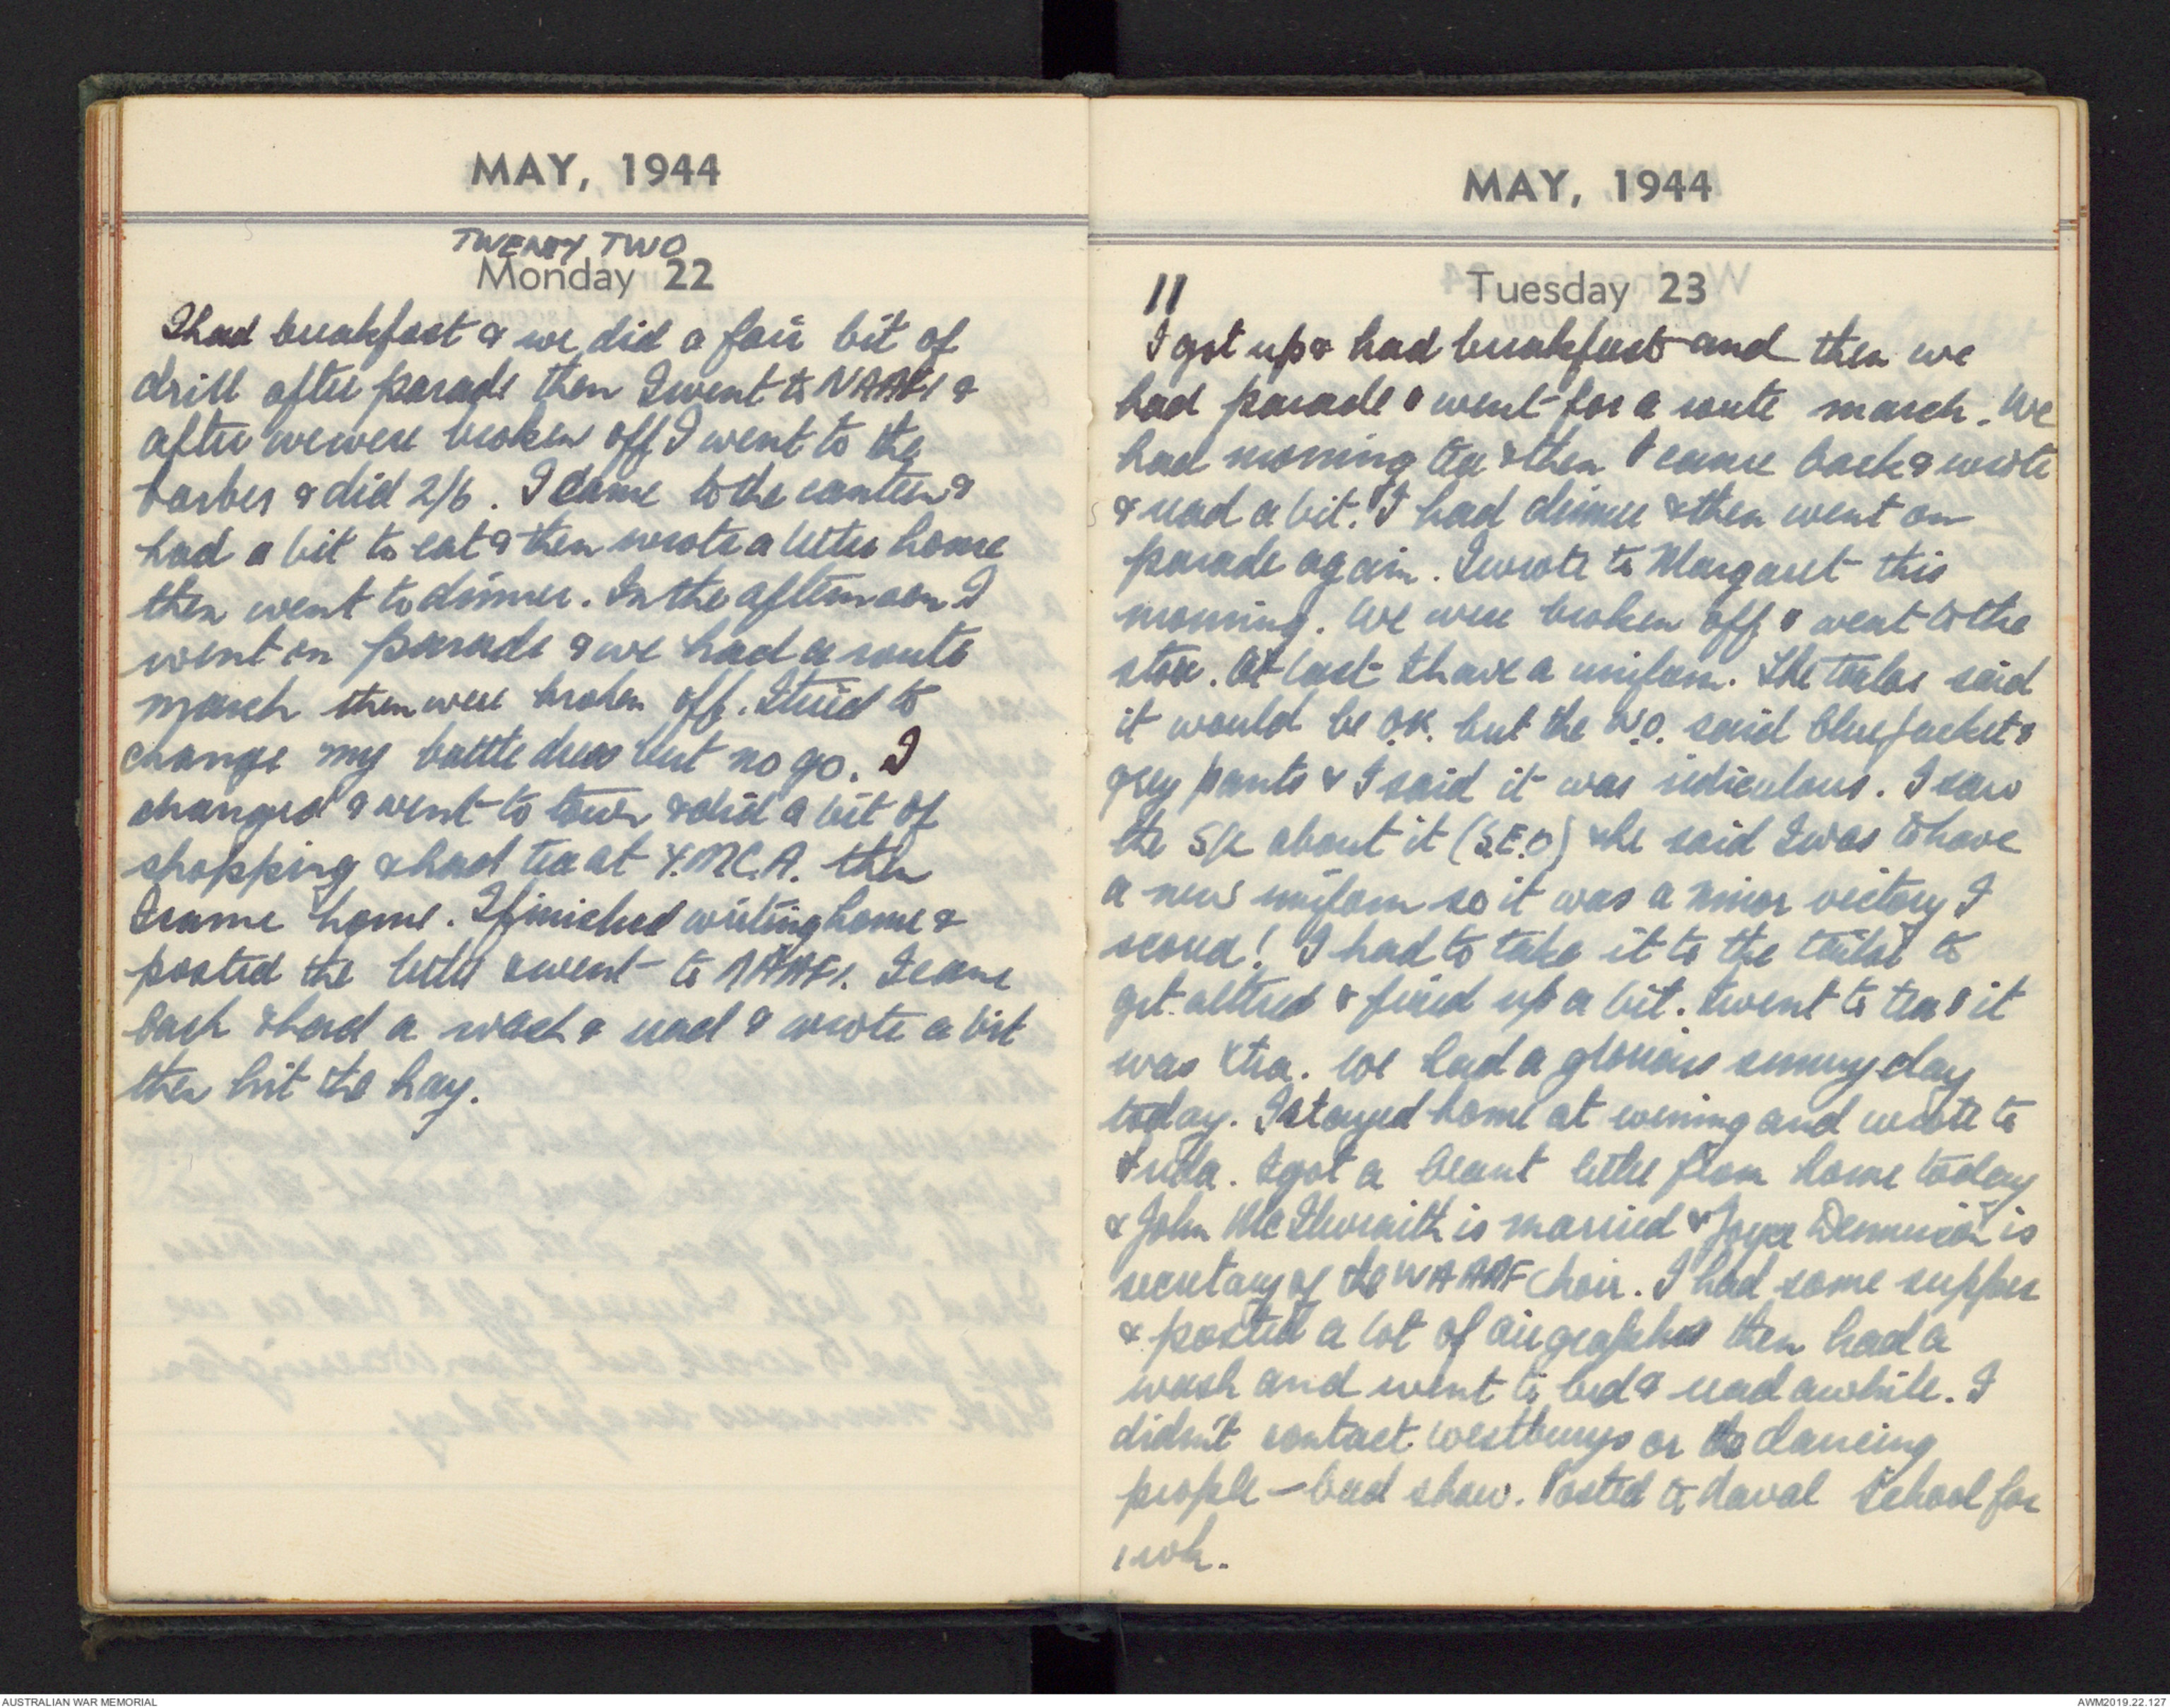 MAY, 1944
TWENTY TWO
Monday 22
I had breakfast & we did a fair bit of
drill after parade then I went to NAAFI &
after we were broken off I went to the
barber & did 2/6. I came to the canteen &
had a bit to eat & then wrote a letter home
then went to dinner. In the afternoon I
went on parade & we had a route
march then were broken off. I tried to
change my battle dress but no go. I
changed & went to town & did a bit of
shopping & had tea at Y.M.C.A. then
I came home. I finished writing home &
posted the letter & went to NAAFI. I came
back & had a wash & read & wrote a bit
then hit the hay.
MAY, 1944
Tuesday 23
11
I got up & had breakfast and then we
had parade & went for a route march. We
had morning tea & then I came back & wrote
& read a bit. I had dinner & then went on
parade again. I wrote to Margaret this
morning. We were broken off & went to the
store. At last I have a uniform. The tailor said
it would be O.K. but the W.O. said blue jacket &
grey pants & I said it was rediculous. I saw
the S/L about it (S.E.O) & he said I was to have
a new uniform so it was a minor victory I
scored! I had to take it to the tailor to
get altered & fixed up a bit. I went to tea & it
was Xtra. We had a glorious sunny day
today. I stayed home at evening and wrote to
I got a beaut letter from home today
& John McIlwraith is married & Joyce Dennison is
secretary of the WAAAF Choir. I had some supper
& posted a lot of airgraphs then had a
wash and went to bed & read awhile. I
didn't contact Westburys or the dancing
people - bad show. Posted to Naval School for
1 wk.
AUSTRALIAN WAR MEMORIAL
AWM2019.22.127